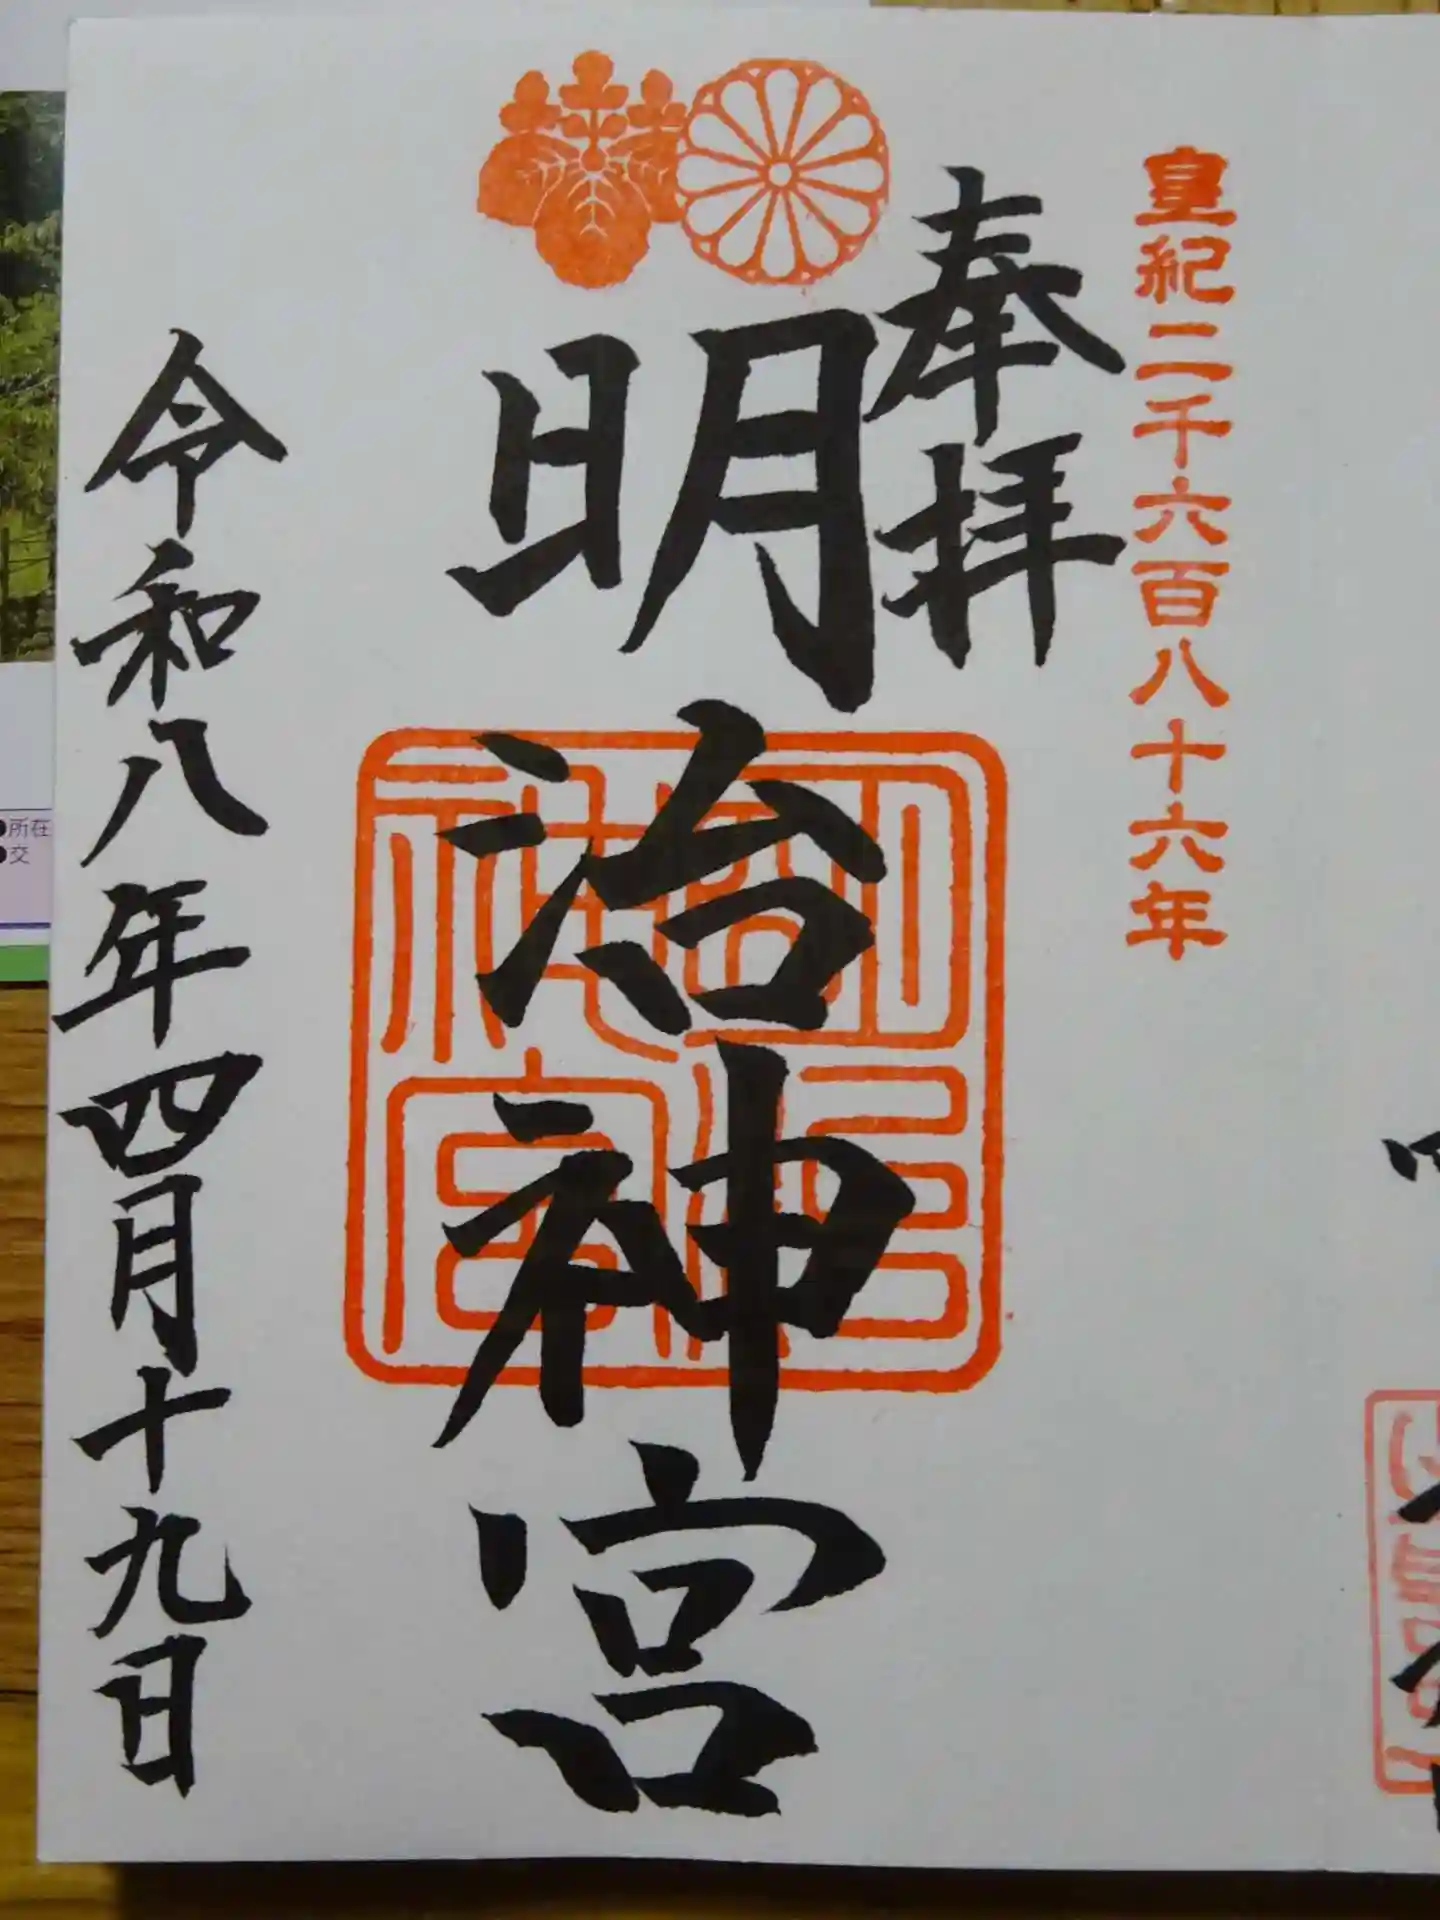 皇紀二千六百八十六年
奉拝
明治神宮
明治神宮
令和八年四月十九日
●所在
●交